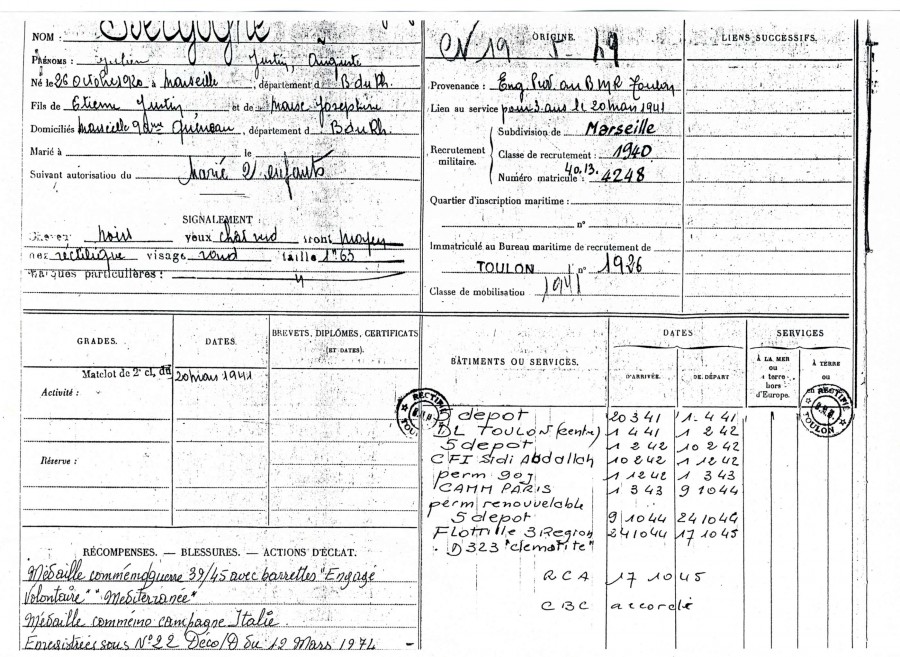 NOM :
PRÉNOMS : Julien Justin, Auguste
Né le 26 octobre 1920 à Marseille, département d B du Rh.
Fils de Etienne Justin et de Marie Josephine
Domiciliés Marseille, département d B du Rh.
Marié à le
Suivant autorisation du Marié 2 enfants
SIGNALEMENT :
noirs yeux front moyen
nez rectiligne visage rond taille 1m63
marques particulières :
CN 19 49
ORIGINE.
Provenance : Eng. Vol. au BMR Toulon
Lien au service pour 3 ans le 20 mars 1941
Recrutement militaire.
Subdivision de Marseille
Classe de recrutement : 1940
40.13.
Numéro matricule : 4248
Quartier d'inscription maritime :
n°
Immatriculé au Bureau maritime de recrutement de
TOULON n° 1926
Classe de mobilisation 1941
LIENS SUCCESSIFS.
GRADES. DATES. BREVETS, DIPLÔMES, CERTIFICATS
(ET DATES).
Matelot de 2e cl, du 20 mars 1941
Activité :
Réserve :
BÂTIMENTS OU SERVICES. DATES SERVICES
D'ARRIVÉE. DE DÉPART À LA MER ou à terre hors d'Europe. À TERRE ou
RECTIFIÉ TOULON
RECTIFIÉ TOULON
5 depot 20 3 41 1 4 41
DL TOULON (centre) 1 4 41 1 2 42
5 depot 1 2 42 10 2 42
CFI Sidi Abdallah 10 2 42 1 12 42
perm 90j 1 12 42 1 3 43
CAMM PARIS 1 3 43 9 10 44
perm renouvelable
5 depot 9 10 44 24 10 44
Flottille 3 Region 24 10 44 17 10 45
D 323 "clematite"
RCA 17 10 45
CBC accordé
RÉCOMPENSES. — BLESSURES. — ACTIONS D'ÉCLAT.
Médaille commémo guerre 39/45 avec barrettes "Engagé
Volontaire" "Mediterranée"
Médaille commémo campagne Italie.
Enregistrées sous N° 22 Déco/D du 12 Mars 1974 -